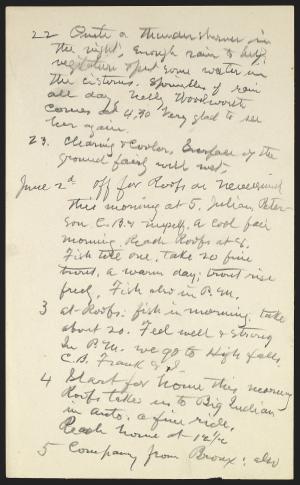 22 Quite a thunder shower in
the night, enough rain to help
vegetation & put some water in
the cisterns. Sprinkles of rain
all day. Nelly Woolworth
comes at 4,40 Very glad to see
her again.
23. Clearing & cooler, surface of the
ground fairly well wet.
June 2d off for Roofs on
this morning at 5. Julian,
son C.B. & myself. A cool fair
morning. Reach Roofs at 8.
Fish till one. Take 20 fine
trout, a warm day; trout rise
freely. Fish also in P.M.
3 at Roofs: fish in morning, take
about 20. Feel well & strong
In P.M. we go to High falls,
C.B. Frank & I.
4 Start for home this morning
Roofs takes us to Big Indian
in auto. a fine ride.
Reach home at 12 1/2
5 Company from Bronx: also